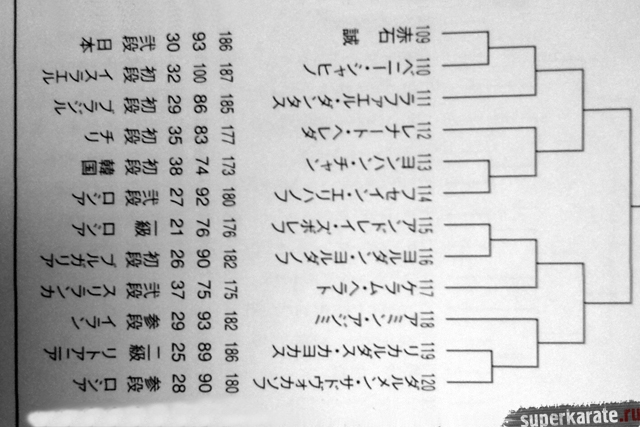 109 赤石 誠 186 93 30 弐段 日本
110 187 100 32 初段 イスラエル
111 ラファエル・ダンタス 185 86 29 初段 ブラジル
112 レナート・ヘレダ 177 83 35 初段 チリ
113 ヨンハン・チャン 173 74 38 初段 韓国
114 フセイン・エリハノフ 180 92 27 弐段 ロシア
115 アンドレイ・ズボレフ 176 76 21 一級 ロシア
116 ヨルダン・ヨルダノフ 182 90 26 初段 ブルガリア
117 ケラム・ヘラト 175 75 37 弐段 スリランカ
118 アミン・アジミ 182 93 29 参段 イラン
119 リカルダス・カヨカス 186 89 25 二級 リトアニア
120 ダルメン・サドヴォカソフ 180 90 28 参段 ロシア
superkarate.ru